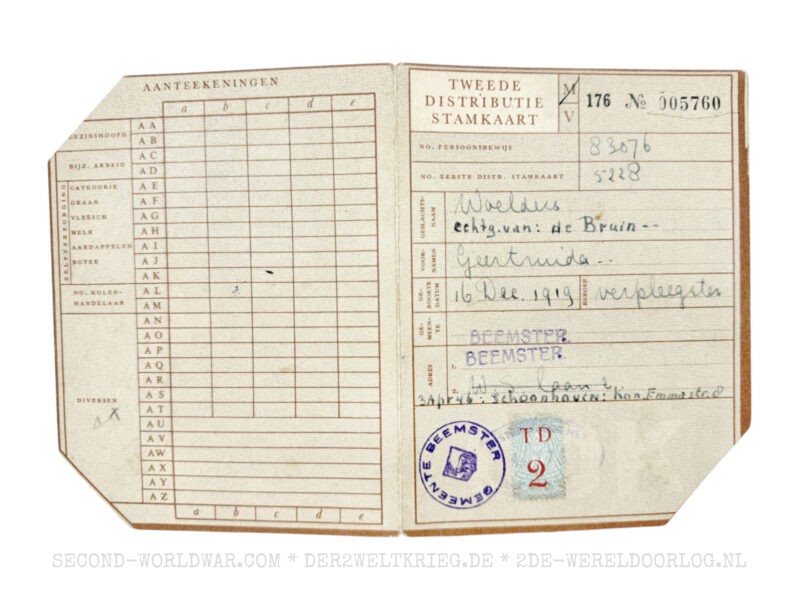 AANTEEKENINGEN
a b c d e
GEZINSHOOFD
AA
AB
BIJZ. ARBEID
AC
AD
ZELFVERZORGING
CATEGORIE AE
GRAAN AF
VLEESCH AG
MELK AH
AARDAPPELEN AI
BOTER AJ
AK
NO. KOLEN-
HANDELAAR
AL
AM
AN
AO
AP
AQ
AR
AS
DIVERSEN
AT
AU
AV
AW
AX
AY
AZ
a b c d e
TWEEDE
DISTRIBUTIE
STAMKAART
M
V
176 No 005760
NO. PERSOONSBEWIJS 83076
NO. EERSTE DISTR. STAMKAART 5228
GESLACHTS-
NAAM
Woelders
echtg. van: de Bruin--
VOOR-
NAMEN
Geertruida--
GE-
BOORTE
DATUM
16 Dec. 1919
BEROEP
verpleegster
GE-
MEEN-
TE
BEEMSTER.
BEEMSTER.
ADRES
1.
2.
3 Apr 46: Schoonhoven: Kon. Emmastr. 8
GEMEENTE BEEMSTER
TD
2
SECOND-WORLDWAR.COM * DER2WELTKRIEG.DE * 2DE-WERELDOORLOG.NL